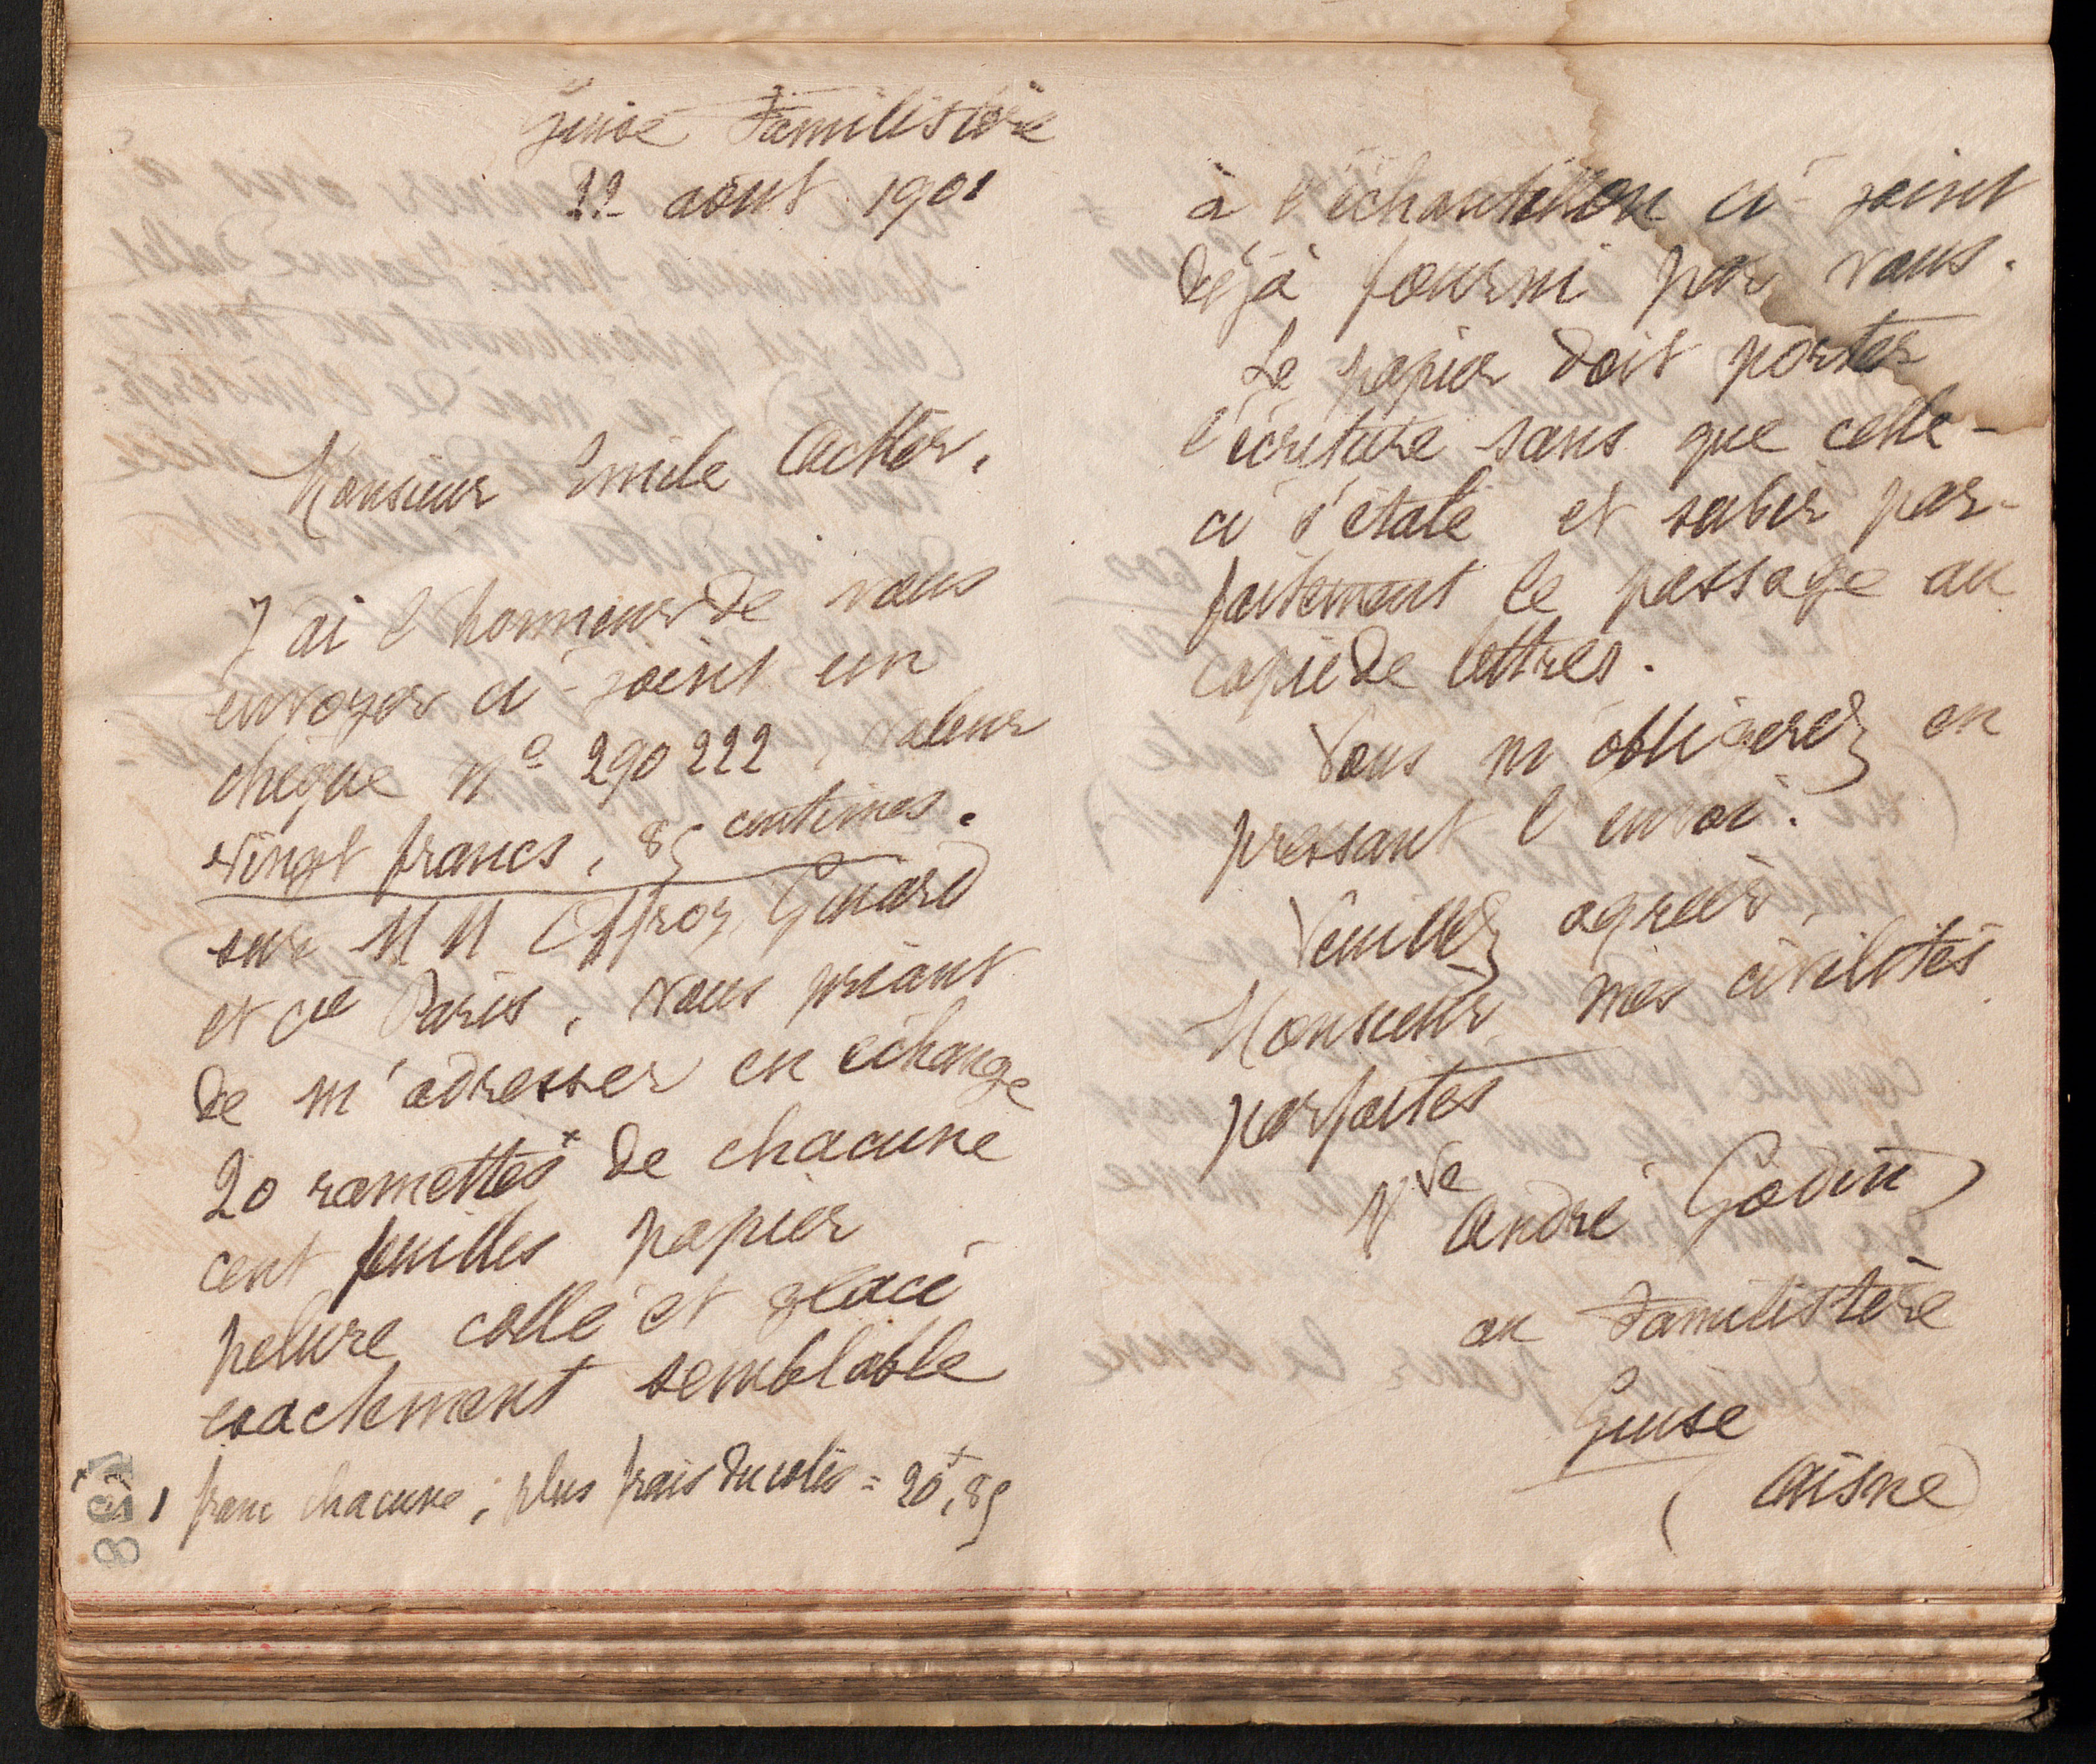 Guise Familistère
22 août 1901
Monsieur Emile Cacheux.
J'ai l'honneur de vous
envoyer ci-joint un
chèque n° 290 222, valeur
vingt francs, 85 centimes.
sur MM Offroy, Guiard
et Cie Paris, vous priant
de m'adresser en échange
20 ramettes + de chacune
cent feuilles papier
pelure collé et glacé
exactement semblable
+ 1 franc chacune, plus frais du colis = 20f,85
138
à l'échantillon ci-joint
déjà fourni par vous.
Le papier doit porter
l'écriture sans que celle-
ci s'étale et subir par-
faitement le passage au
copie de lettres.
Vous m'obligerez en
pressant l'envoi.
Veuillez agréer
Monsieur mes civilités
parfaites
Vve André Godin
au Familistère
Guise
(Aisne)